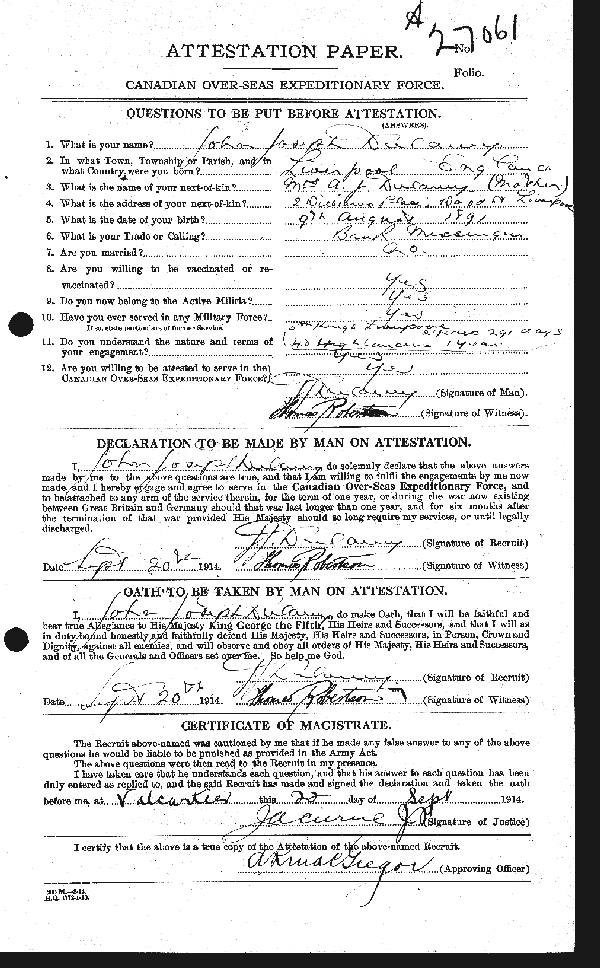 A
27061
No.
ATTESTATION PAPER.
Folio.
CANADIAN OVER-SEAS EXPEDITIONARY FORCE.
QUESTIONS TO BE PUT BEFORE ATTESTATION.
(ANSWERS).
1. What is your name? John Joseph
2. In what Town, Township or Parish, and in
what Country were you born? Liverpool England
3. What is the name of your next-of-kin? Mrs A. J. (Mother)
4. What is the address of your next-of-kin? 2 Liverpool
5. What is the date of your birth? 9th August 1891
6. What is your Trade or Calling? Bank Messenger
7. Are you married? No.
8. Are you willing to be vaccinated or re-
vaccinated? Yes
9. Do you now belong to the Active Militia? Yes
10. Have you ever served in any Military Force? Yes
If so, state particulars of former Service. Kings Liverpool 291 days
11. Do you understand the nature and terms of
your engagement? Highlanders 1 year
Yes
12. Are you willing to be attested to serve in the
CANADIAN OVER-SEAS EXPEDITIONARY FORCE? Yes
(Signature of Man).
Thomas Robertson (Signature of Witness).
DECLARATION TO BE MADE BY MAN ON ATTESTATION.
I, John Joseph do solemnly declare that the above answers
made by me to the above questions are true, and that I am willing to fulfil the engagements by me now
made, and I hereby engage and agree to serve in the Canadian Over-Seas Expeditionary Force, and
to be attached to any arm of the service therein, for the term of one year, or during the war now existing
between Great Britain and Germany should that war last longer than one year, and for six months after
the termination of that war provided His Majesty should so long require my services, or until legally
discharged.
(Signature of Recruit)
Date Sept 20th 1914. Thomas Robertson (Signature of Witness)
OATH TO BE TAKEN BY MAN ON ATTESTATION.
I, John Joseph, do make Oath, that I will be faithful and
bear true Allegiance to His Majesty King George the Fifth, His Heirs and Successors, and that I will as
in duty bound honestly and faithfully defend His Majesty, His Heirs and Successors, in Person, Crown and
Dignity, against all enemies, and will observe and obey all orders of His Majesty, His Heirs and Successors,
and of all the Generals and Officers set over me. So help me God.
(Signature of Recruit)
Date Sept 20th 1914. Thomas Robertson (Signature of Witness)
CERTIFICATE OF MAGISTRATE.
The Recruit above-named was cautioned by me that if he made any false answer to any of the above
questions he would be liable to be punished as provided in the Army Act.
The above questions were then read to the Recruit in my presence.
I have taken care that he understands each question, and that his answer to each question has been
duly entered as replied to, and the said Recruit has made and signed the declaration and taken the oath
before me, at Valcartier this 22 day of Sept 1914.
(Signature of Justice)
I certify that the above is a true copy of the Attestation of the above-named Recruit.
(Approving Officer)